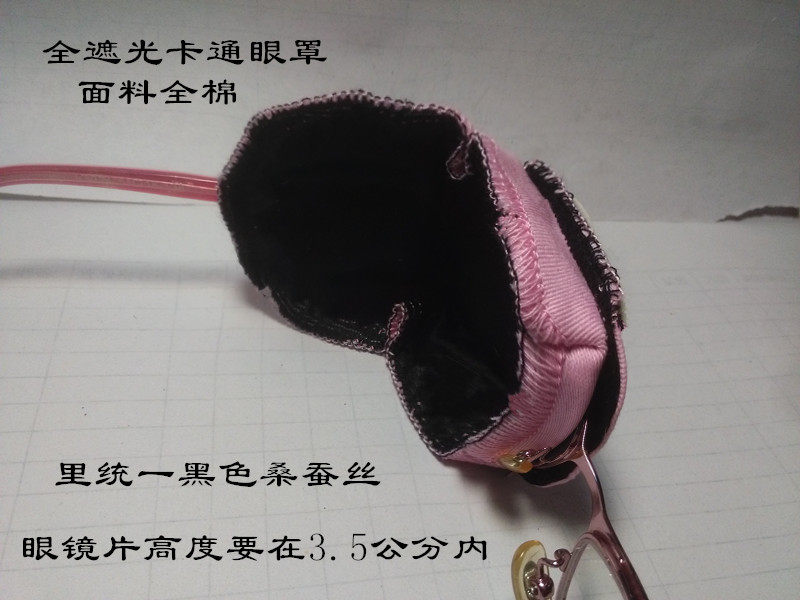 全遮光卡通眼罩
面料全棉
里统一黑色桑蚕丝
眼镜片高度要在3.5公分内